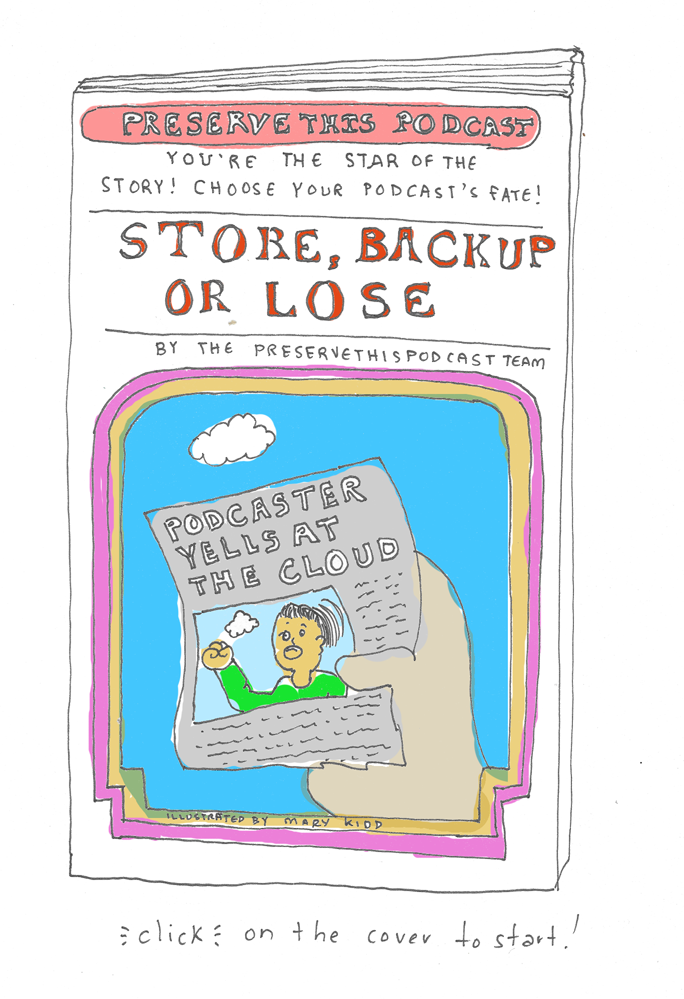 PRESERVE THIS PODCAST
YOU'RE THE STAR OF THE
STORY! CHOOSE YOUR PODCAST'S FATE!
STORE, BACKUP
OR LOSE
BY THE PRESERVETHISPODCAST TEAM
PODCASTER
YELLS AT
THE CLOUD
ILLUSTRATED BY MARY KIDD
click on the cover to start!